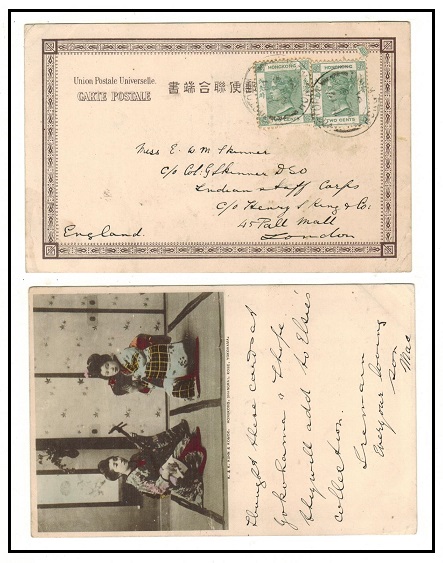 Union Postale Universelle.
CARTE POSTALE
書端合聯便郵
HONGKONG
TWO CENTS
HONGKONG
TWO CENTS
Miss E W M Skinner
c/o Col: G Skinner DSO
Indian Staff Corps
c/o Henry S King & Co:
45 Pall Mall
London
England.
Thought these cards at
Yokohama & I hope
they will add to Elsie's
collection.
I remain
Ever your loving
son
Mac